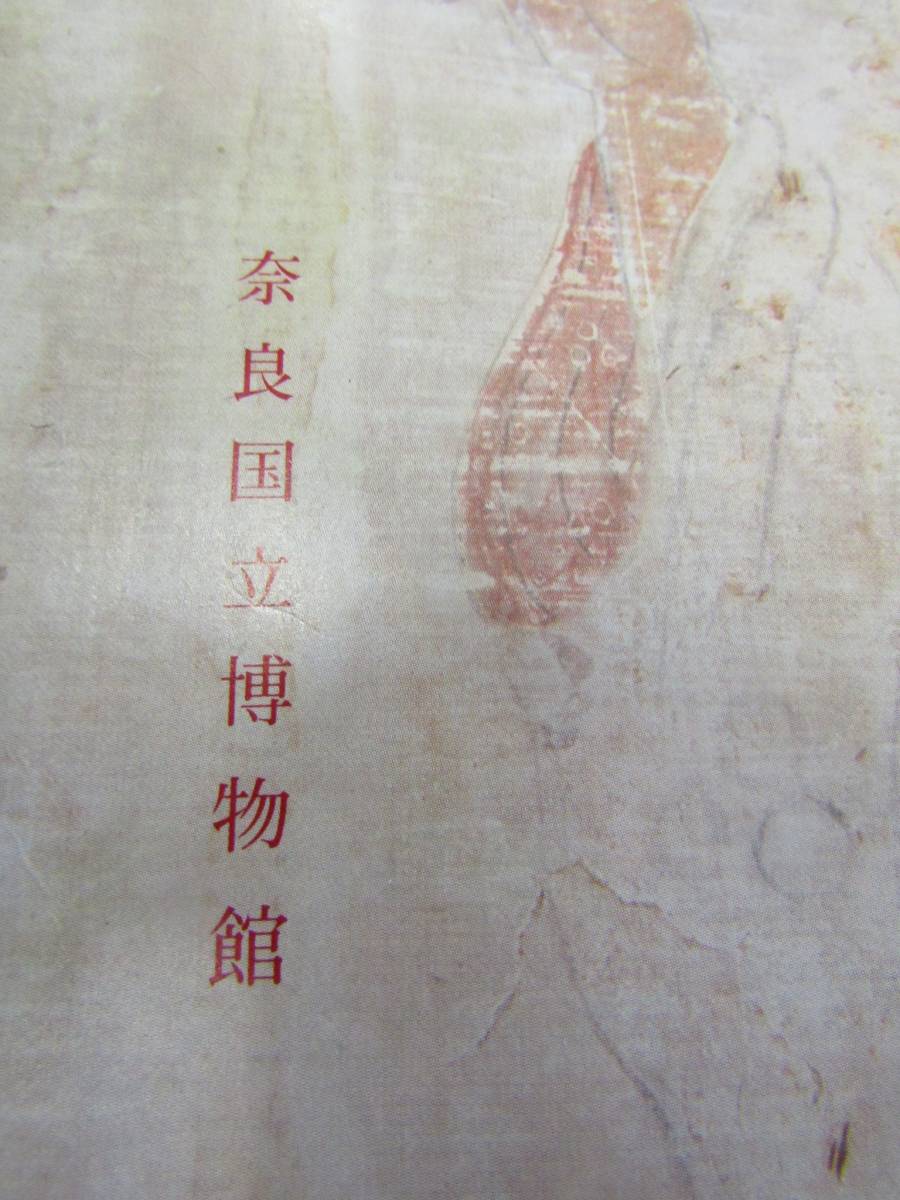 奈良国立博物館